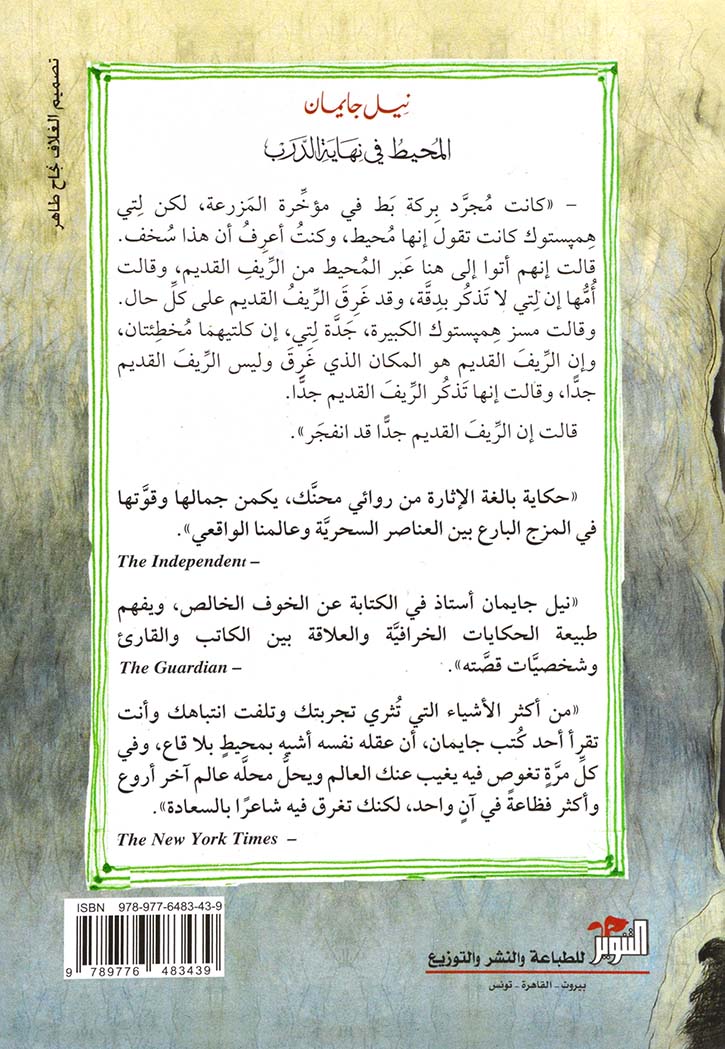 تصميم الغلاف نجاح طاهر
نيل جايمان
المُحيطُ في نهايةِ الدَرَب
– «كانت مُجرَّد بِركة بَط في مؤخِّرة المَزرعة، لكن لِتي
هِمپستوك كانت تقول إنها مُحيط، وكنتُ أعرِفُ أن هذا سُخف.
قالت إنهم أتوا إلى هنا عَبر المُحيط من الرِّيفِ القديم، وقالت
أُمُّها إن لِتي لا تَذكُر بدِقَّة، وقد غَرِقَ الرِّيفُ القديم على كلِّ حال.
وقالت مسز هِمپستوك الكبيرة، جَدَّة لِتي، إن كلتيهما مُخطِئتان،
وإن الرِّيفَ القديم هو المكان الذي غَرِقَ وليس الرِّيفَ القديم
جدًّا، وقالت إنها تَذكُر الرِّيفَ القديم جدًّا.
قالت إن الرِّيفَ القديم جدًّا قد انفجَر».
«حكاية بالغة الإثارة من روائي محنَّك، يكمن جمالها وقوَّتها
في المزج البارع بين العناصر السحريَّة وعالمنا الواقعي».
The Independent –
«نيل جايمان أستاذ في الكتابة عن الخوف الخالص، ويفهم
طبيعة الحكايات الخرافيَّة والعلاقة بين الكاتب والقارئ
وشخصيَّات قصَّته». The Guardian –
«من أكثر الأشياء التي تُثري تجربتك وتلفت انتباهك وأنت
تقرأ أحد كُتب جايمان، أن عقله نفسه أشبه بمحيطٍ بلا قاع، وفي
كلِّ مرَّةٍ تغوص فيه يغيب عنك العالم ويحلُّ محلَّه عالم آخر أروع
وأكثر فظاعةً في آنٍ واحد، لكنك تغرق فيه شاعرًا بالسعادة».
The New York Times –
ISBN 978-977-6483-43-9
9 789776 483439
التنوير للطباعة والنشر والتوزيع
بيروت - القاهرة - تونس